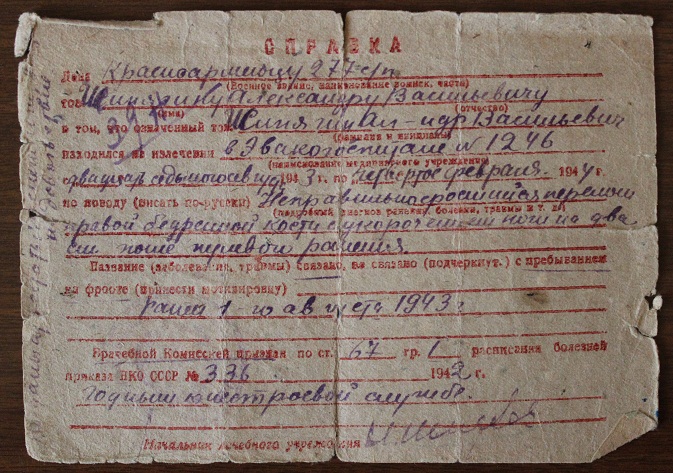 СПРАВКА
Дана Красноармейцу 277 сп
(Военное звание, наименование воинск. части)
тов. Шинягину Александру Васильевичу
(имя) (отчество)
в том, что означенный тов. Шинягин Ал-ндр Васильевич
(фамилия и инициалы)
находился на излечении в Эвакогоспитале № 1246
(наименование медицинского учреждения)
1943 г. по четвертое февраля 1944 г.
по поводу (писать по-русски) Неправильно сросшийся перелом
(подробный диагноз ранения, болезни, травмы и т. д.)
правой бедренной кости с укорочением ноги на два
см после пулевого ранения
Название (заболевание, травмы) связано, не связано (подчеркнут.) с пребыванием
на фронте (принести мотивировку)
ранен 1-го августа 1943 г
Врачебной Комиссией признан по ст. 67 гр. I расписания болезней
приказа НКО СССР № 336 1942 г.
Годным к нестроевой службе.
Начальник лечебного учреждения